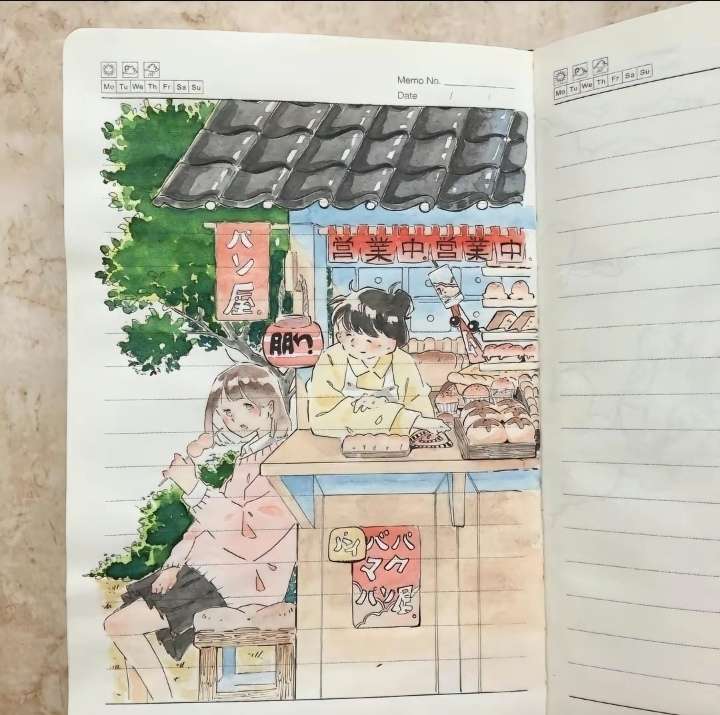 Mo Tu We Th Fr Sa Su
Memo No.
Date / /
Mo Tu We Th Fr Sa Su
パン屋。
営業中。営業中。
パク
バマ
パン屋。